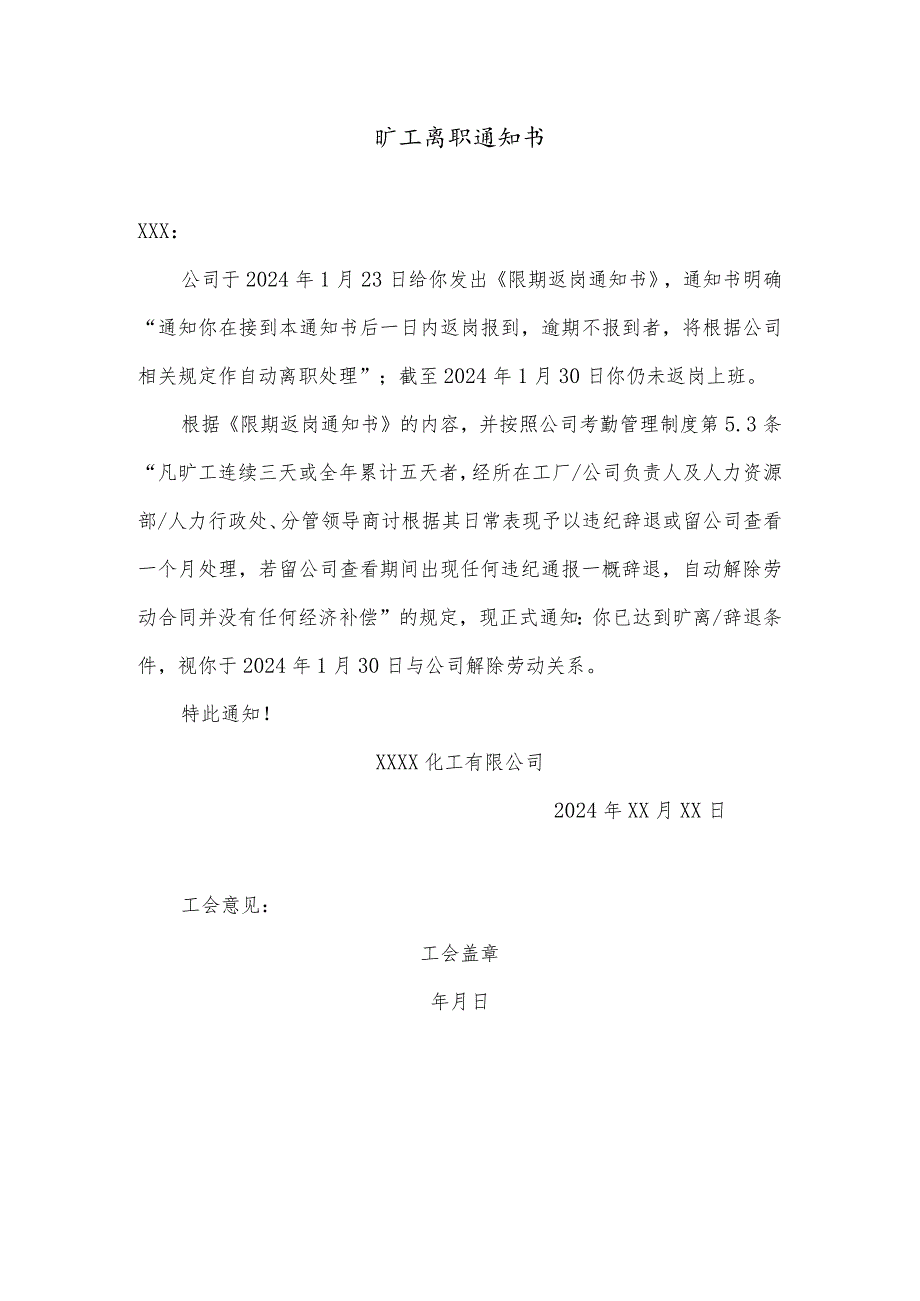 旷工离职通知书
XXX：
公司于 2024 年 1 月 23 日给你发出《限期返岗通知书》，通知书明确
“通知你在接到本通知书后一日内返岗报到，逾期不报到者，将根据公司
相关规定作自动离职处理”；截至 2024 年 1 月 30 日你仍未返岗上班。
根据《限期返岗通知书》的内容，并按照公司考勤管理制度第 5.3 条
“凡旷工连续三天或全年累计五天者，经所在工厂/公司负责人及人力资源
部/人力行政处、分管领导商讨根据其日常表现予以违纪辞退或留公司查看
一个月处理，若留公司查看期间出现任何违纪通报一概辞退，自动解除劳
动合同并没有任何经济补偿”的规定，现正式通知：你已达到旷离/辞退条
件，视你于 2024 年 1 月 30 日与公司解除劳动关系。
特此通知！
XXXX 化工有限公司
2024 年 XX 月 XX 日
工会意见：
工会盖章
年月日